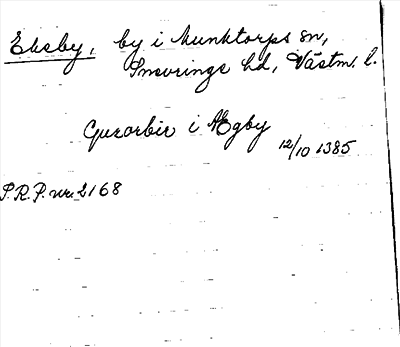 Eksby, by i Munktorps sn,
Snevringe hd, Västm. l.
Gusorbir i Ægby
12/10 1385
P.R.P. nr. 2168